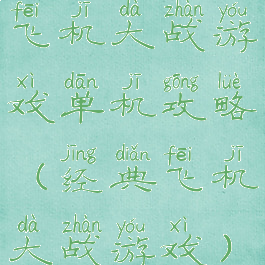 fēi jī dà zhàn yóu
飞机大战游
xì dān jī gōng luè
戏单机攻略
jīng diǎn fēi jī
（经典飞机
dà zhàn yóu xì
大战游戏）